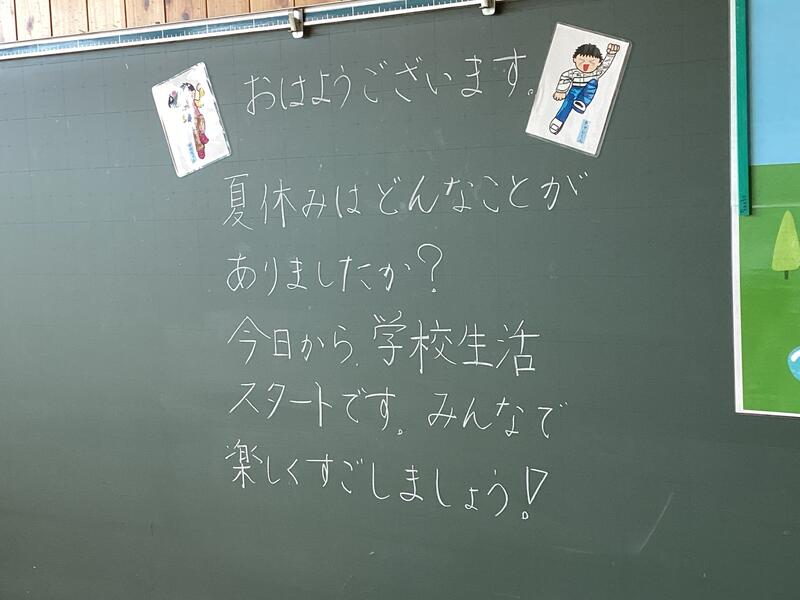 おはようございます。
夏休みはどんなことが
ありましたか?
今日から、学校生活
スタートです。みんなで
楽しくすごしましょう!